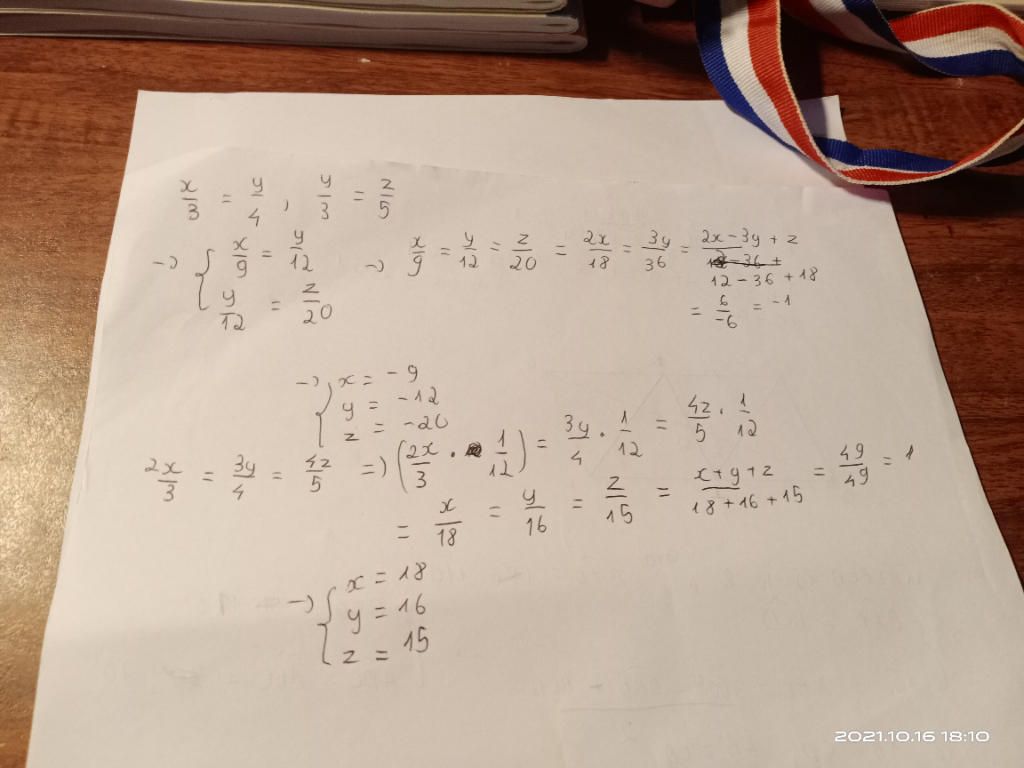 x/3 = y/4 , y/3 = z/5
→ { x/9 = y/12 → x/9 = y/12 = z/20 = 2x/18 = 3y/36 = (2x-3y+z)/(12-36+18)
y/12 = z/20 = 6/-6 = -1
→ { x = -9
y = -12
z = -20
2x/3 = 3y/4 = 4z/5 => (2x/3 . 1/12) = 3y/4 . 1/12 = 4z/5 . 1/12
= x/18 = y/16 = z/15 = (x+y+z)/(18+16+15) = 49/49 = 1
→ { x = 18
y = 16
z = 15
2021.10.16 18:10